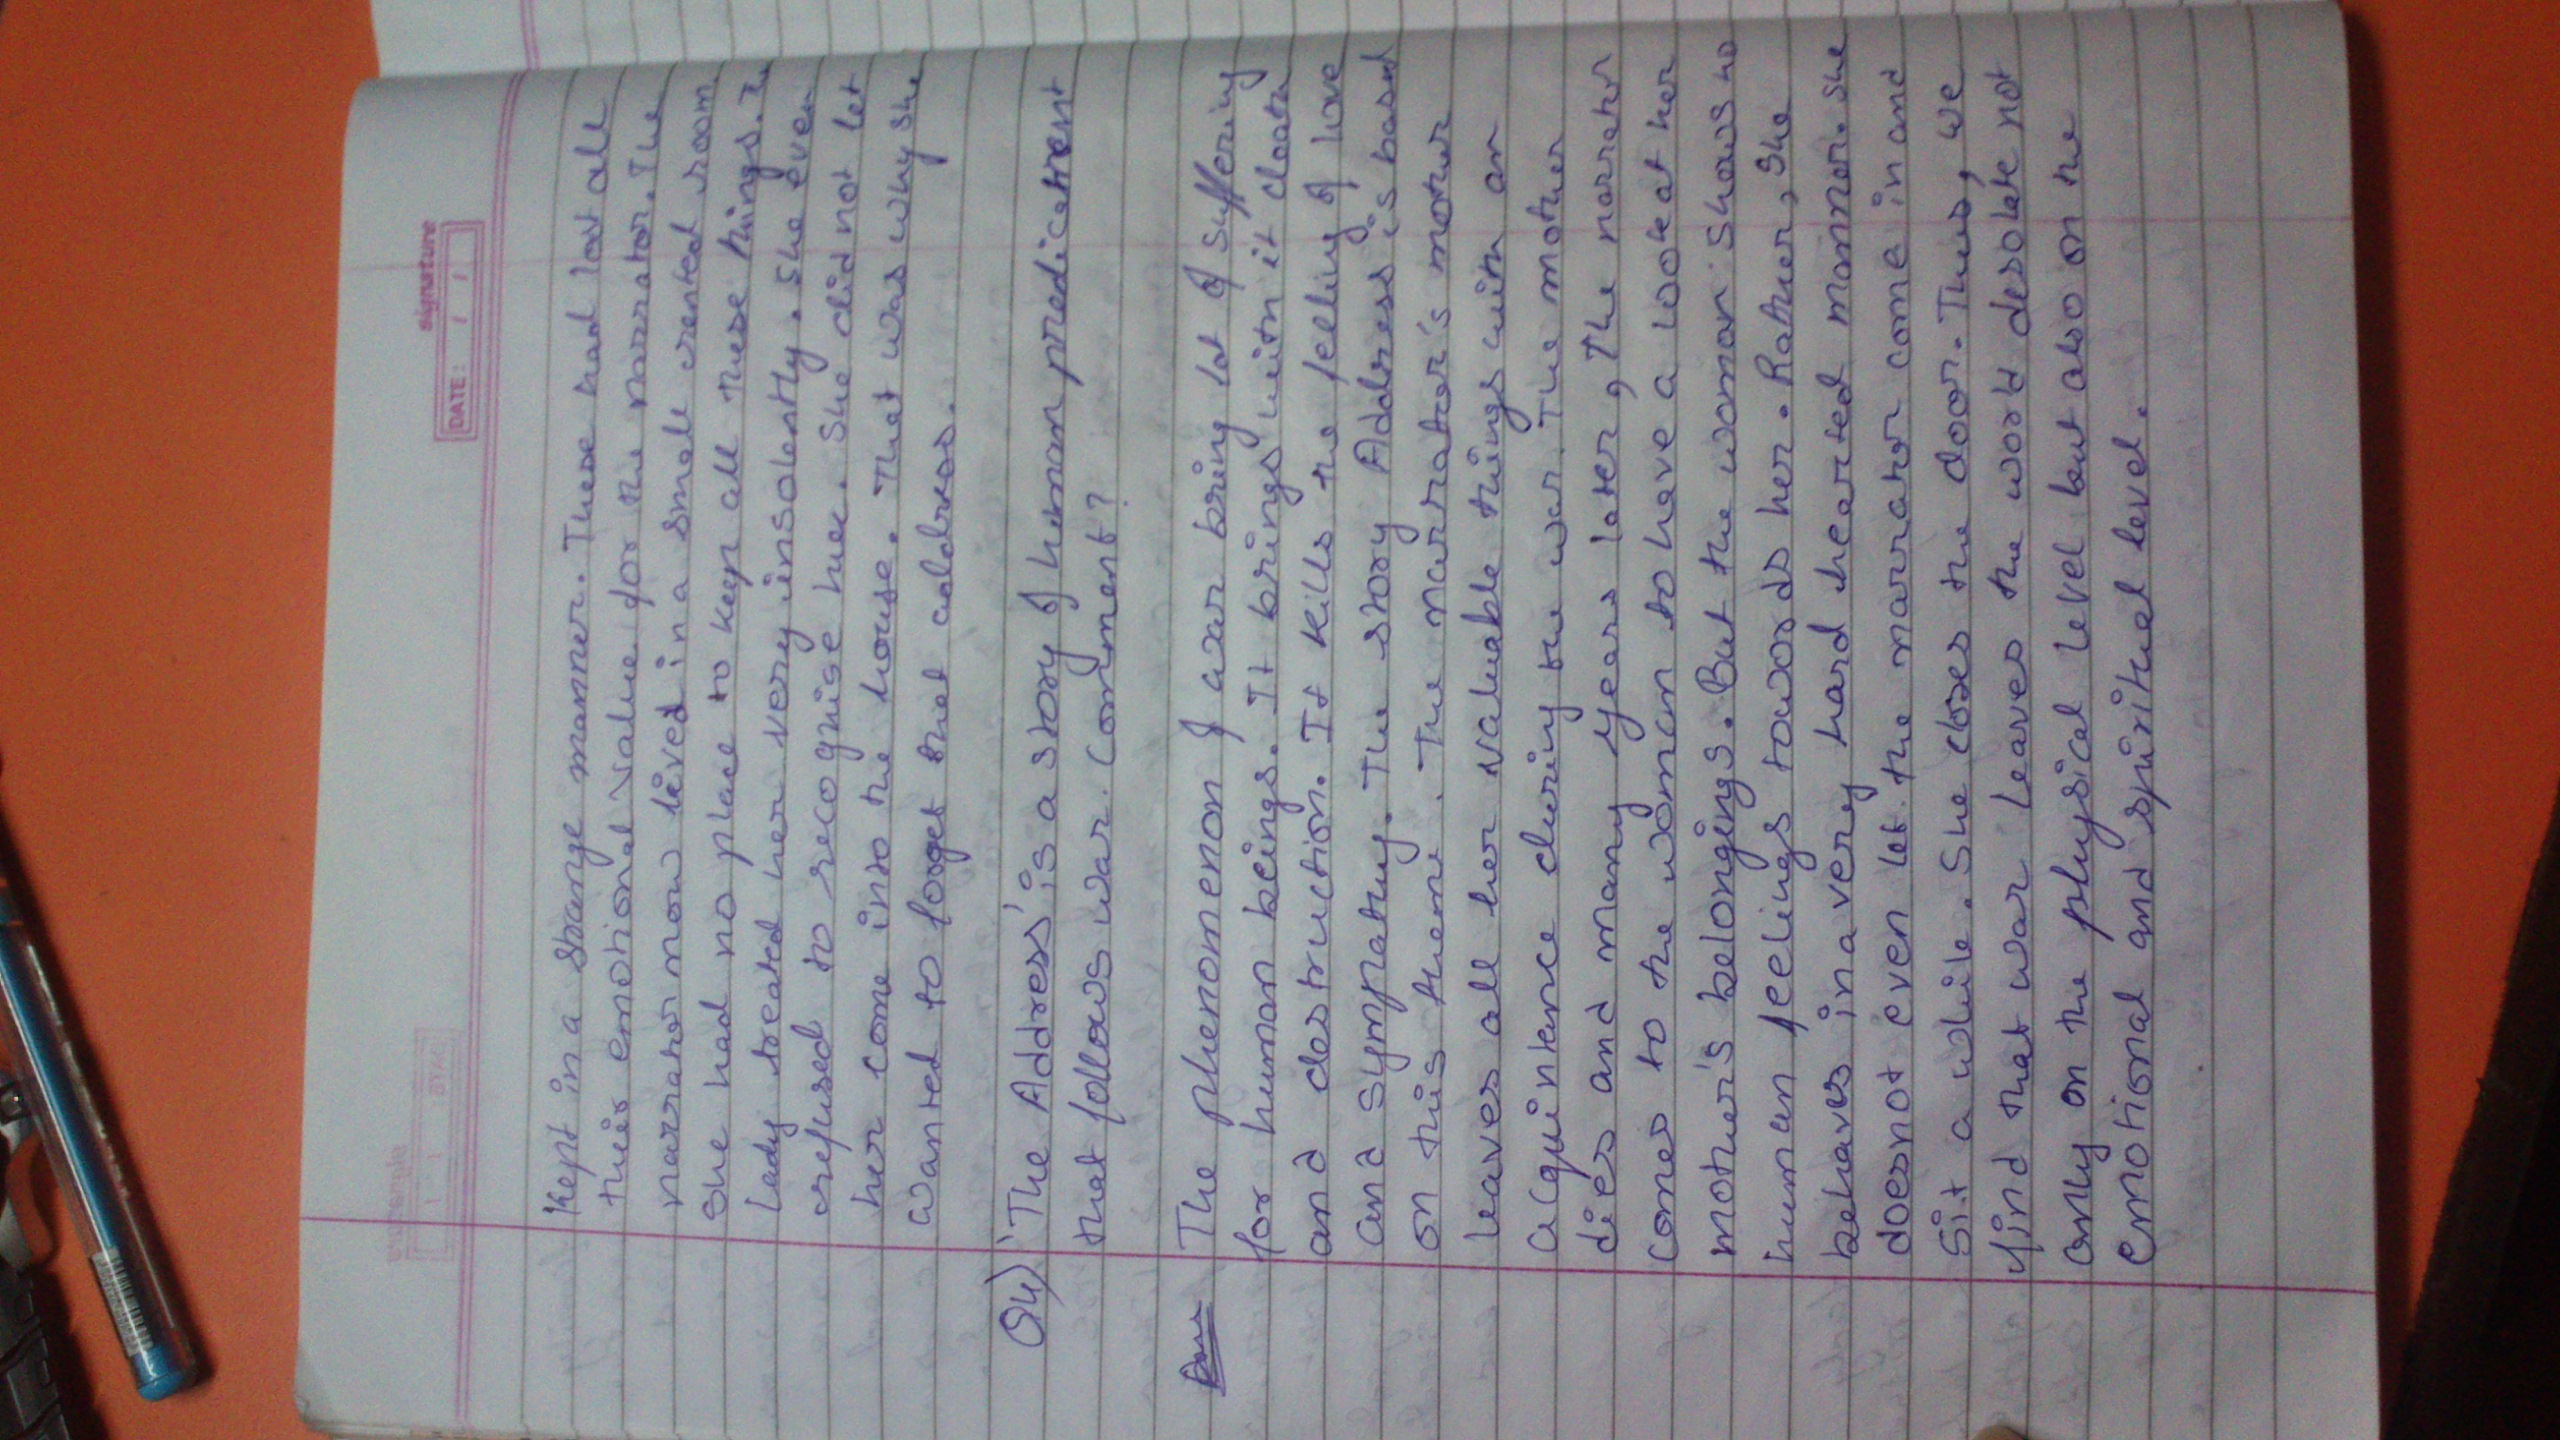 signature
DATE: / /
Kept in a strange manner. These had lost all
their emotional value for the narrator. The
narrator now lived in a small rented room.
She had no place to keep all these things. The
Lady treated her very insolently. She even
refused to recognise her. She did not let
her come into the house. That was why she
wanted to forget that address.
Q4) 'The Address' is a story of human predicament
that follows war. Comment?
Ans The phenomenon of war bring lot of suffering
for human beings. It brings with it death
and destruction. It kills the feeling of love
and sympathy. The story Address is based
on this theme. The narrator's mother
leaves all her valuable things with an
acquintance during the war. The mother
dies and many years later, The narrator
comes to the woman to have a look at her
mother's belongings. But the woman shows no
human feelings towards her. Rather, She
behaves in a very hard hearted manner. She
doesnot even let the narrator come in and
sit a while. She closes the door. Thus, we
find that war leaves the world desolate not
only on the physical level but also on the
emotional and spiritual level.